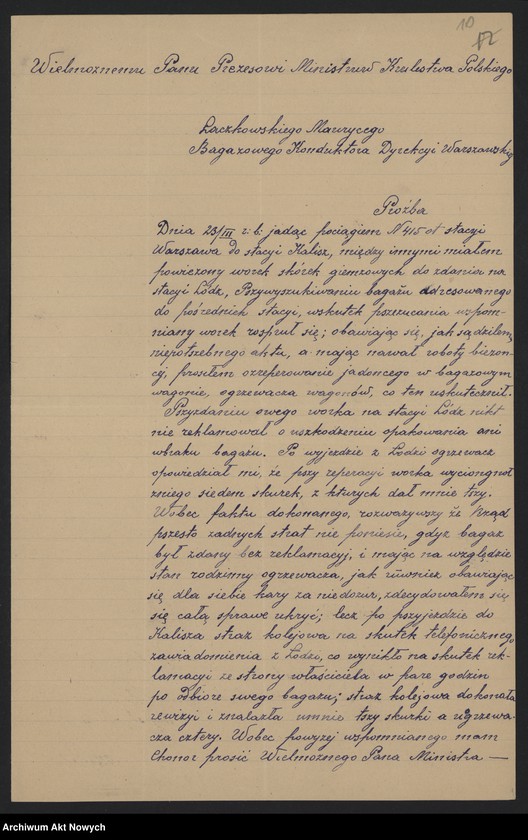 10
12
Wielmoznemu Panu Prezesowi Ministrów Krulestwa Polskiego
Laczkowskiego Maurycego
Bagazowego Konduktora Dyrekcyi Warszawskiej
Proźba
Dnia 23/III r: b: jadąc pociągiem N 415 ot stacyi
Warszawa do stacyi Kalisz, między innymi miałem
powiezony worek skórek giemzowych do zdania na
stacyi Łódz, Przywyszukiwaniu bagażu adresowanego
do pośrednich stacyi, wskutek przezucania wspom-
niany worek rospruł się; obawiając się, jak sądziłem,
niepotszebnego aktu, a mając nawał roboty bieżon-
cej, prosiłem o zreperowanie jadoncego w bagazowym
wagonie, ogrzewacza wagonów, co ten uskutecznił.
Przyzdaniu owego worka na stacyi Łódz nikt
nie reklamował o uszkodzeniu opakowania ani
wbraku bagazu. Po wyjezdzie z Łodzi ogrzewacz
opowiedział mi, że pszy reperacyi worka wyciongnoł
zniego siedem skurek, z kturych dał mnie tszy.
Wobec faktu dokonanego, rozwazywszy że Rząd
pszesto zadnych strat nie poniesie, gdyz bagaz
był zdany bez reklamacyj, i mając na względzie
stan rodzinny ogrzewacza, jak ruwniez obawiając
się dla siebie kary za niedozur, zdecydowałem się
się całą sprawe ukryć; lecz po pszyjezdzie do
Kalisza straz kolejowa na skutek telefonicznego
zawiadomienia z Łodzi, co wynikło na skutek rek-
lamacyi ze strony właściciela w pare godzin
po odbioze swego bagazu; straz kolejowa dokonała
rewizyi i znalazła umnie tszy skurki a uogrzewa-
cza cztery. Wobec powyzej wspomnianego mam
Chonor prosić Wielmoznego Pana Ministra —
Archiwum Akt Nowych